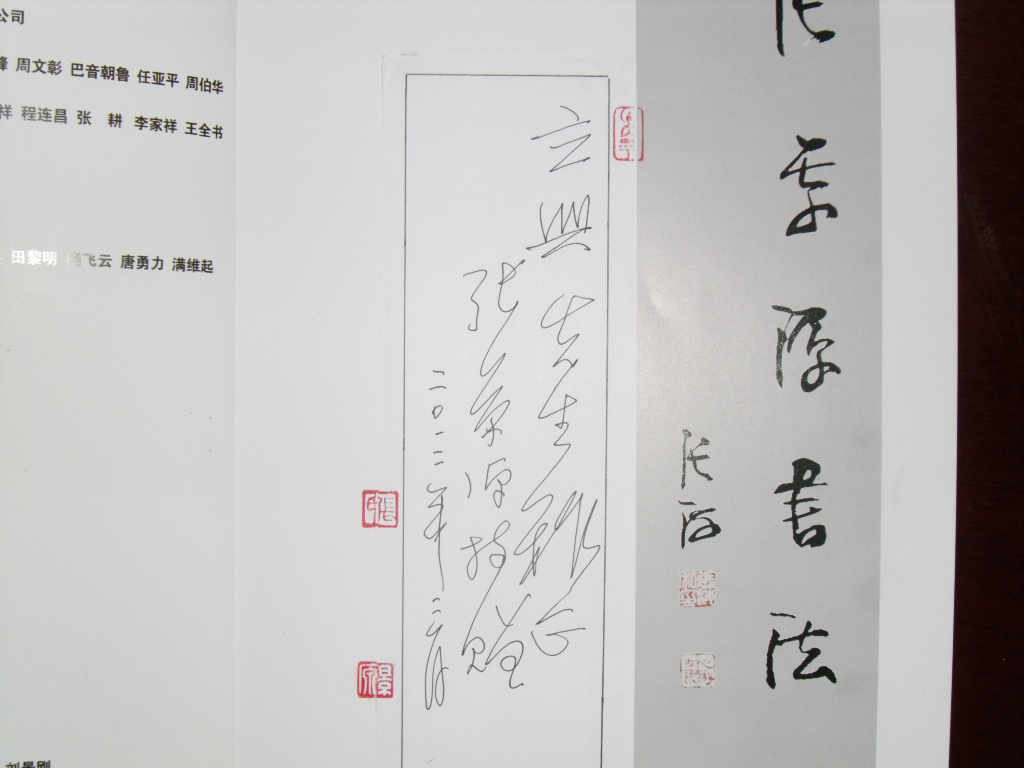 公司
峰 周文彰 巴音朝鲁 任亚平 周伯华
祥 程连昌 张 耕 李家祥 王全书
田黎明 杨飞云 唐勇力 满维起
立興先生雅正
张景源持赠
二〇一二年二月
张景源書法
张海